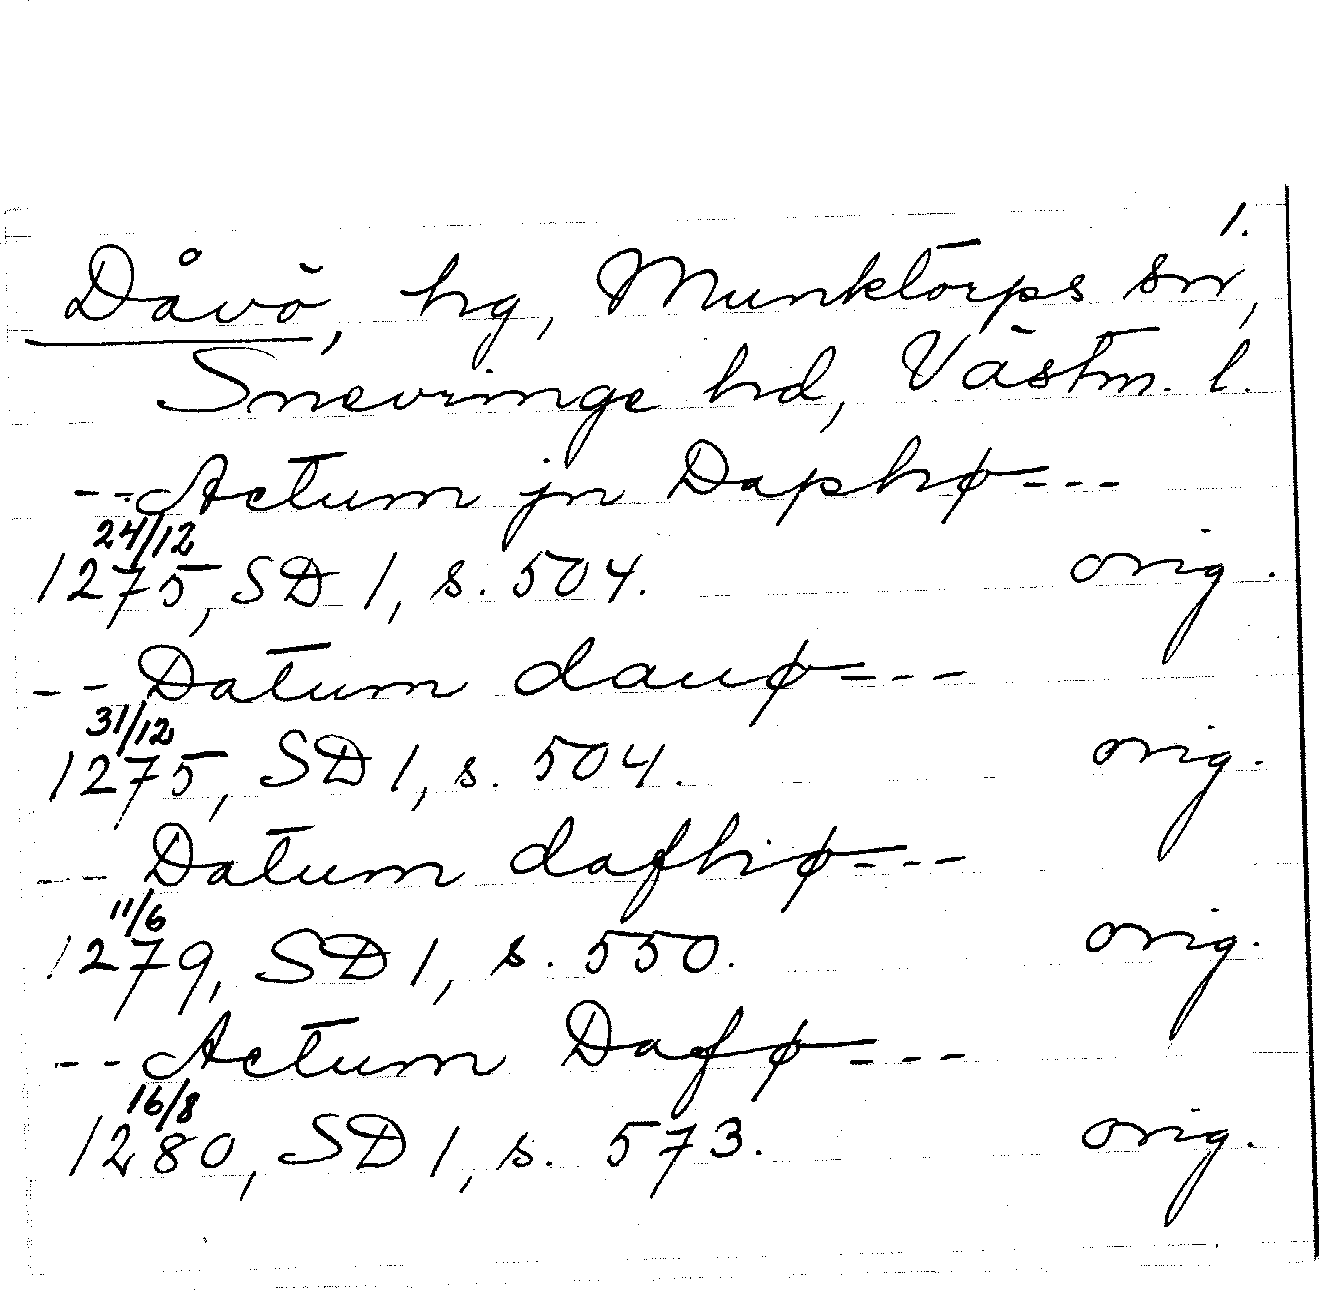 1.
Dåvö, hg, Munktorps sn,
Snevringe hd, Västm. l.
--Actum jn Daphø---
24/12
1275, SD 1, s. 504. orig.
-- Datum dauø---
31/12
1275, SD 1, s. 504. orig.
-- Datum dafhø---
11/6
1279, SD 1, s. 550. orig.
-- Actum Dafø---
16/8
1280, SD 1, s. 573. orig.